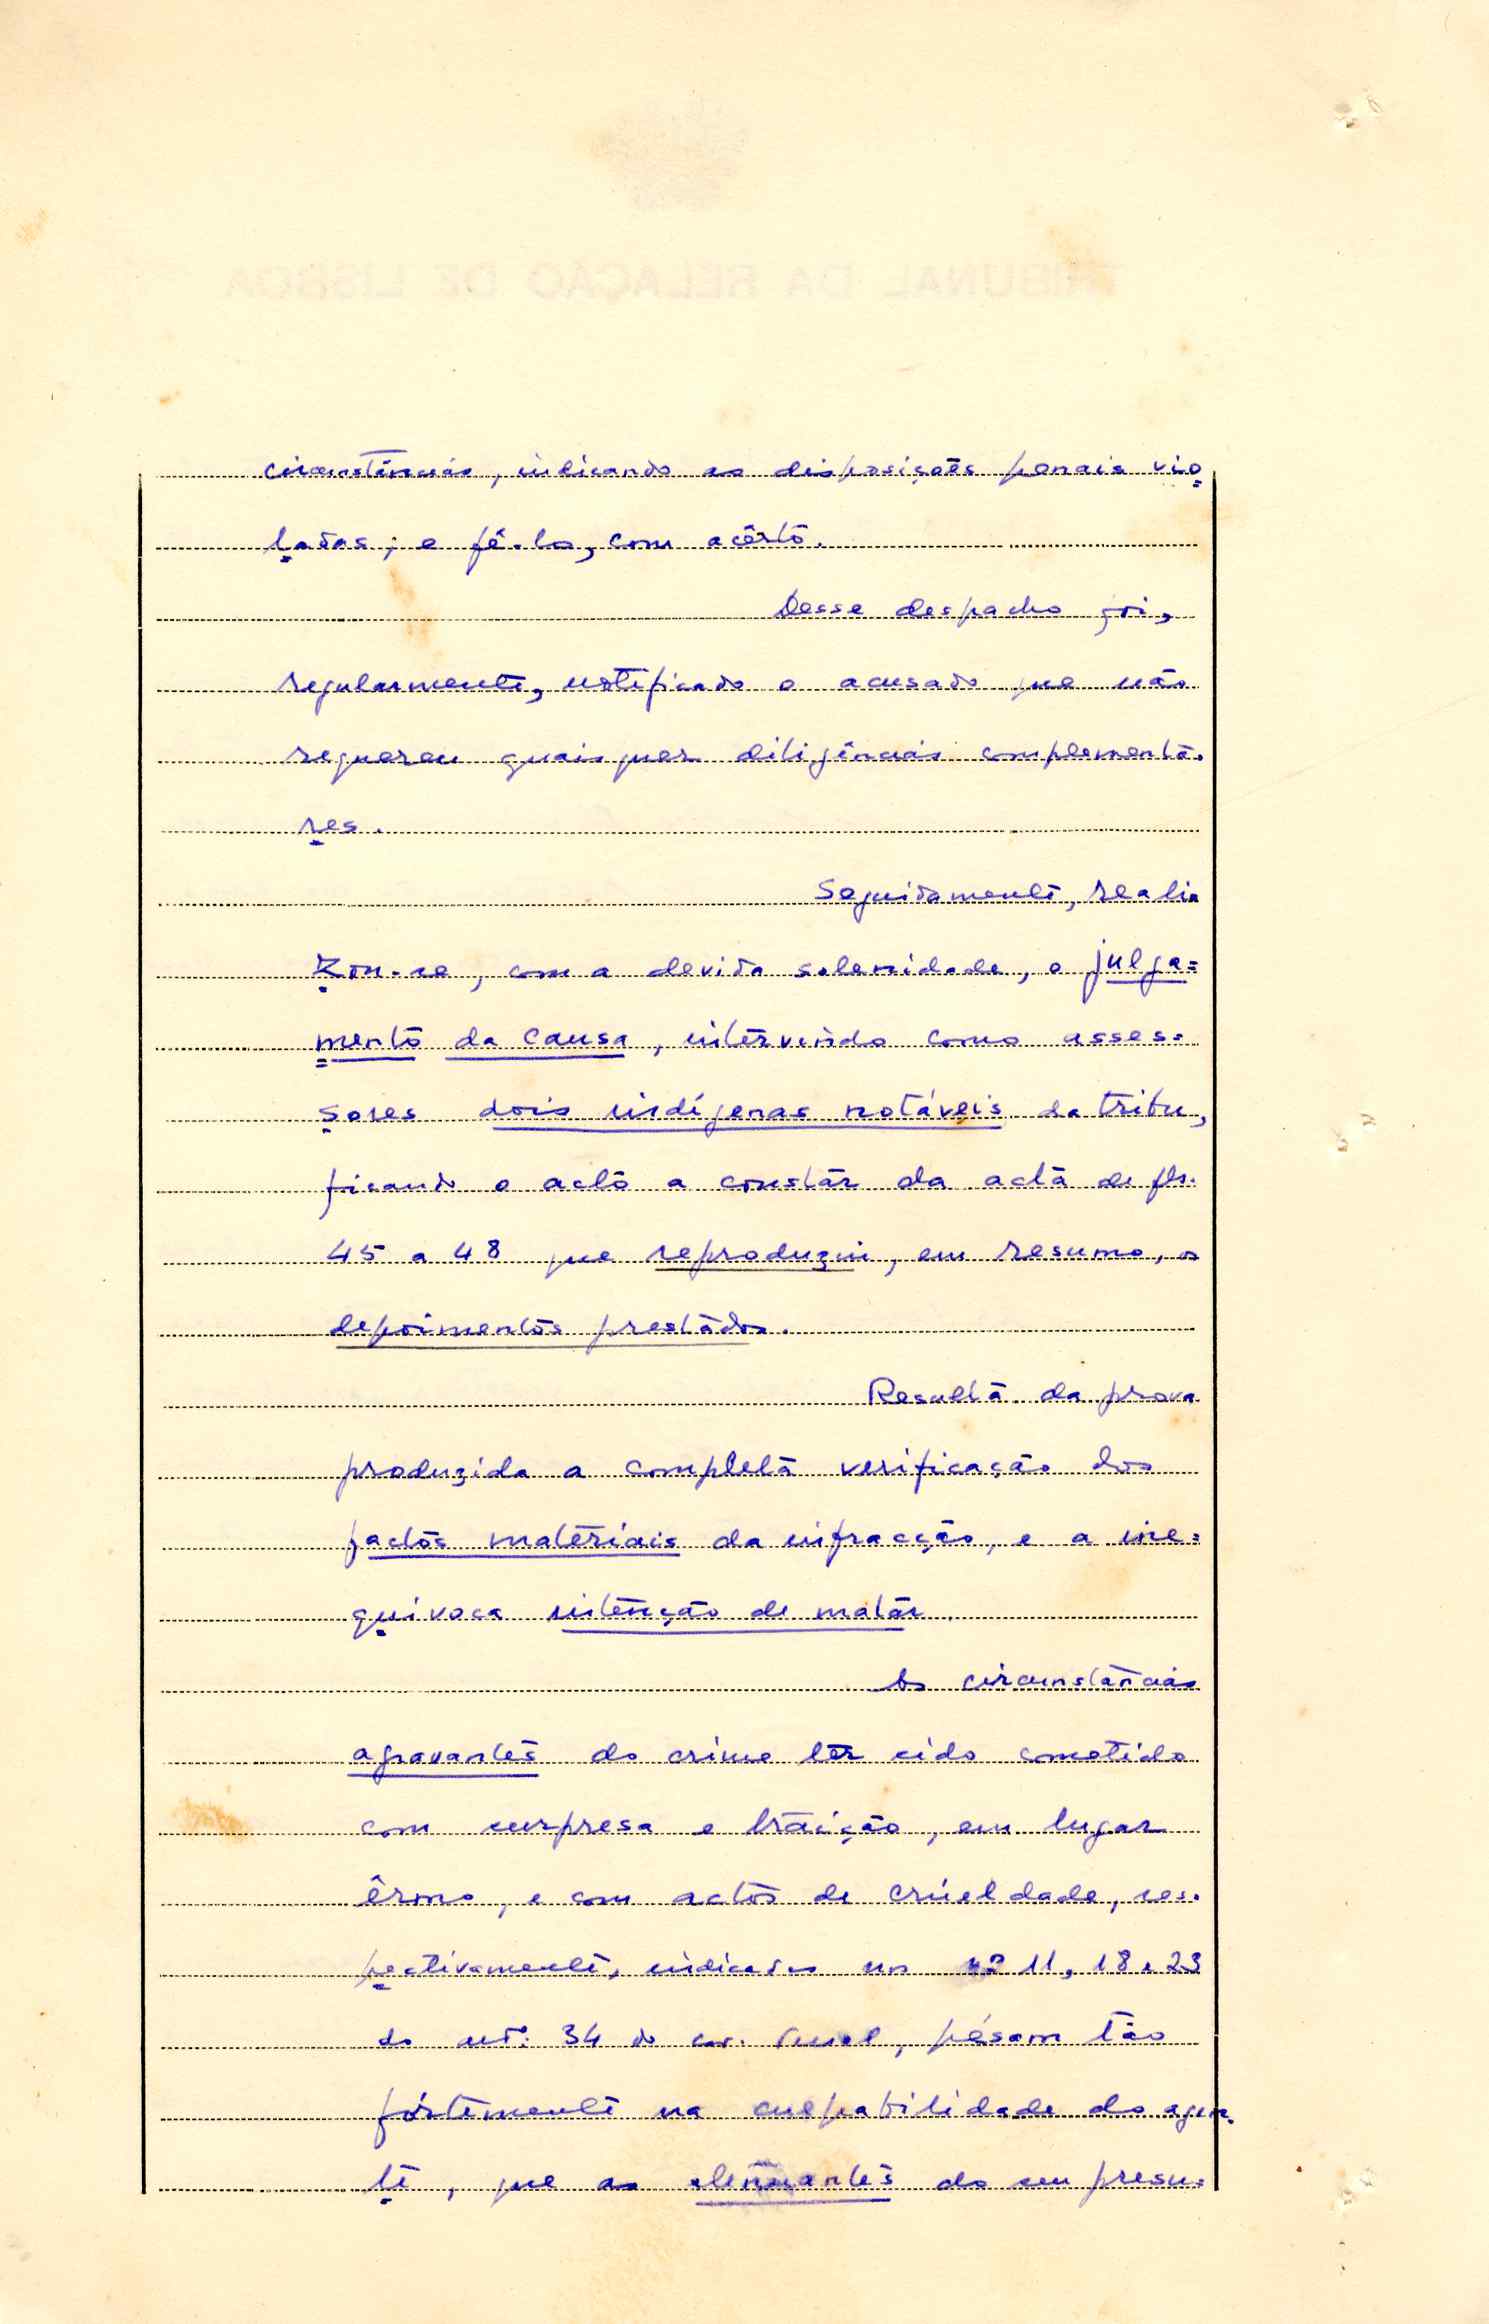 circunstâncias, indicando as disposições penais vio
ladas; e fê-lo, com acêrto.
Desse despacho foi,
regularmente, notificado o acusado que não
requereu quaisquer diligências complementa-
res.
Seguidamente, reali
zou-se, com a devida solenidade, o julga=
mento da causa, intervindo como asses-
sores dois indígenas notáveis da tribu,
ficando o acto a constar da acta de fls.
45 a 48 que reproduziu, em resumo, os
depoimentos prestados.
Resulta da prova
produzida a completa verificação dos
factos materiais da infracção, e a ine=
quivoca intenção de matar.
As circunstâncias
agravantes do crime ter sido cometido
com surpresa e traição, em lugar
êrmo, e com actos de crueldade, res-
pectivamente, indicadas nos nº 11, 18 e 23
do artº: 34 do Cod. Penal, pésam tão
fórtemente na culpabilidade do agen-
te, que as atenuantes do seu presu=
TRIBUNAL DA RELAÇÃO DE LISBOA